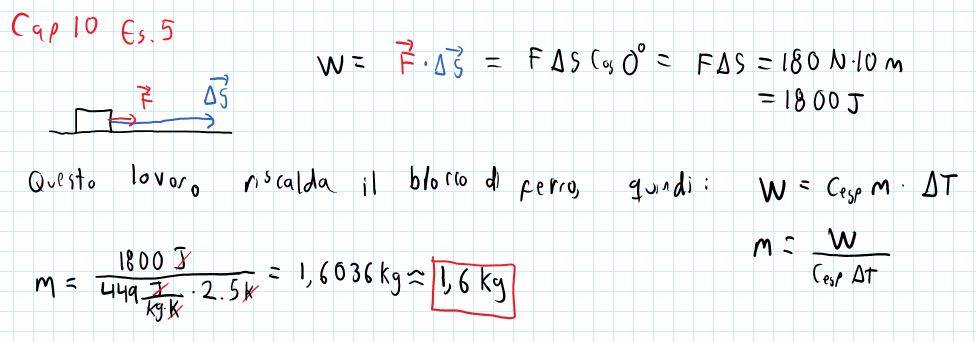 Cap 10 Es. 5
W = F⃗ · ΔS⃗ = F ΔS Cos 0° = F ΔS = 180 N · 10 m
= 1800 J
F⃗ ΔS⃗
Questo lavoro riscalda il blocco di ferro, quindi: W = Cesp m · ΔT
m = W / Cesp ΔT
m = 1800 J / 449 J/kg·K · 2.5 K = 1,6036 kg ≈ 1,6 kg